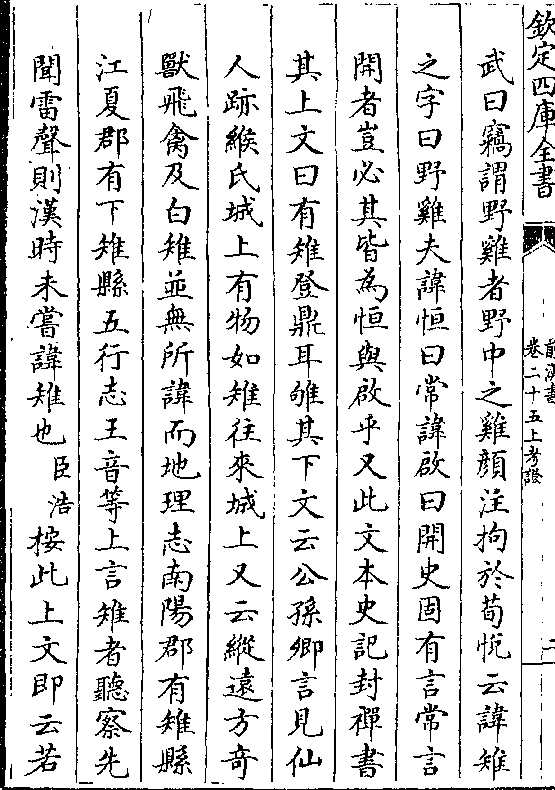 欽定四庫全書
前漢書
卷二十五上考證
二
武曰竊謂野雞者野中之雞顔注拘於荀悅云諱雉
之字曰野雞夫諱恒曰常諱啟曰開史固有言常言
開者豈必其皆為恒與啟乎又此文本史記封禪書
其上文曰有雉登鼎耳雊其下文云公孫卿言見仙
人跡緱氏城上有物如雉往來城上又云縱遠方奇
獸飛禽及白雉並無所諱而地理志南陽郡有雉縣
江夏郡有下雉縣五行志王音等上言雉者聽察先
聞雷聲則漢時未嘗諱雉也臣浩按此上文即云若